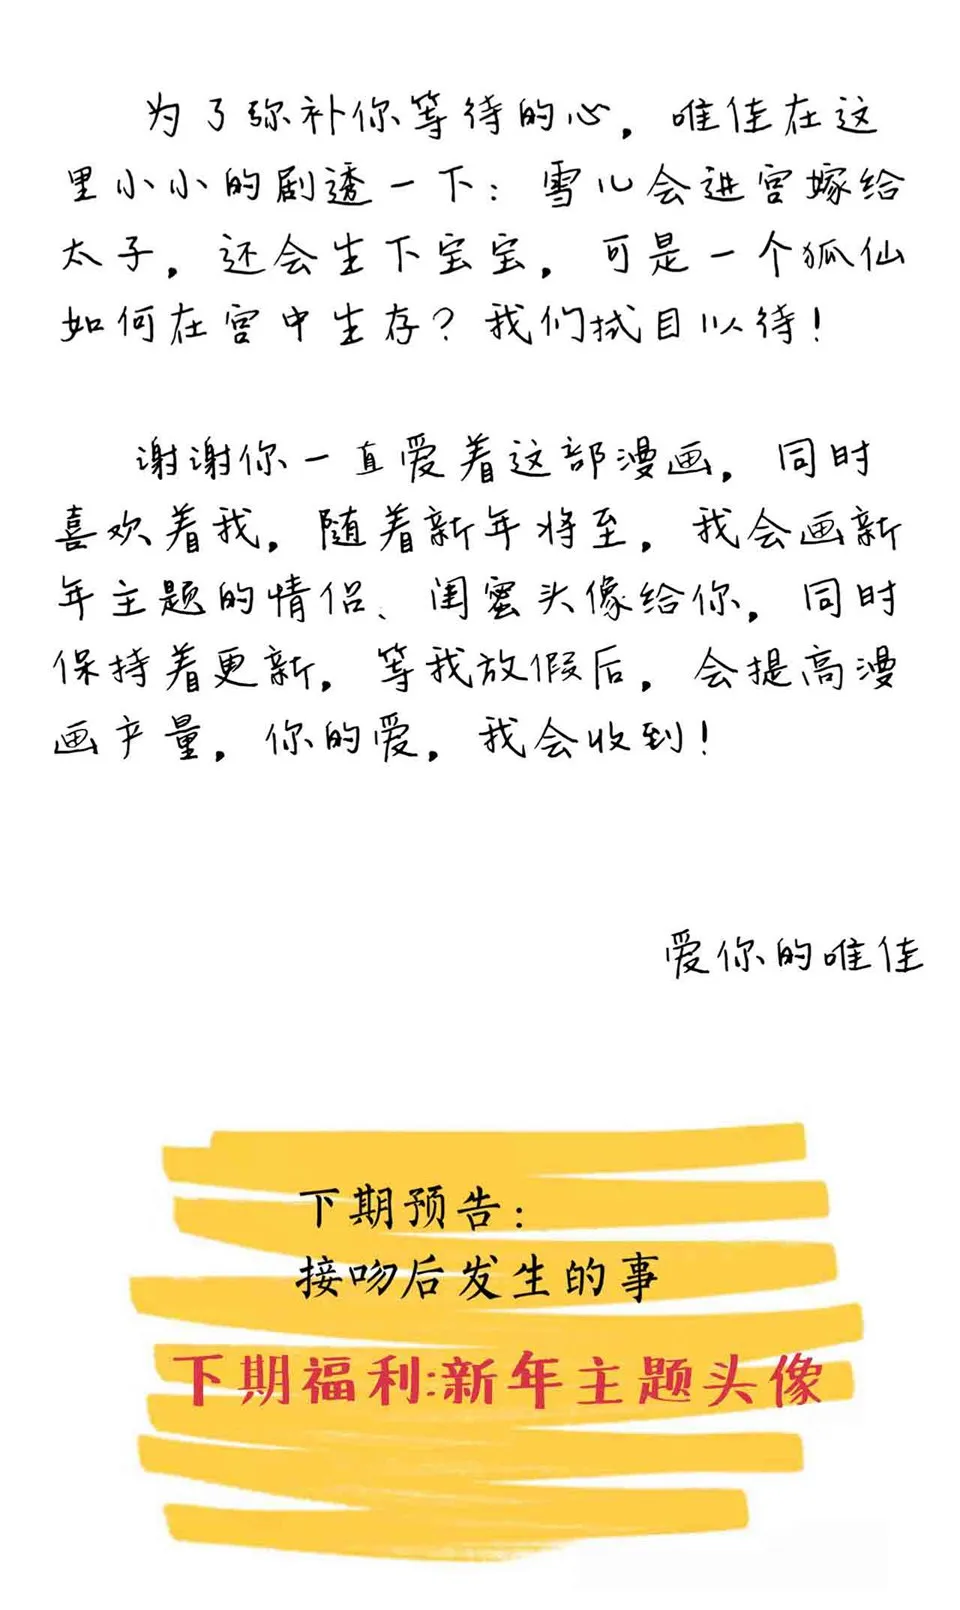 为了弥补你等待的心，唯佳在这
里小小的剧透一下：雪儿会进宫嫁给
太子，还会生下宝宝，可是一个狐仙
如何在宫中生存？我们拭目以待！
谢谢你一直爱着这部漫画，同时
喜欢着我，随着新年将至，我会画新
年主题的情侣、闺蜜头像给你，同时
保持着更新，等我放假后，会提高漫
画产量，你的爱，我会收到！
爱你的唯佳
下期预告：
接吻后发生的事
下期福利:新年主题头像